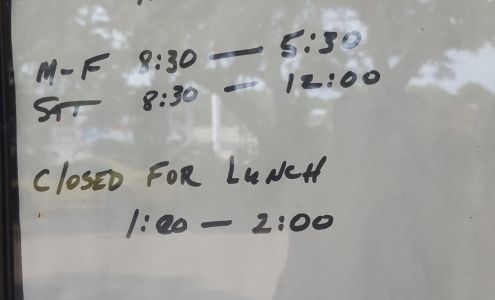 M-F 8:30 — 5:30
SAT 8:30 — 12:00
ClOSED FOR LUNCH
1:00 — 2:00